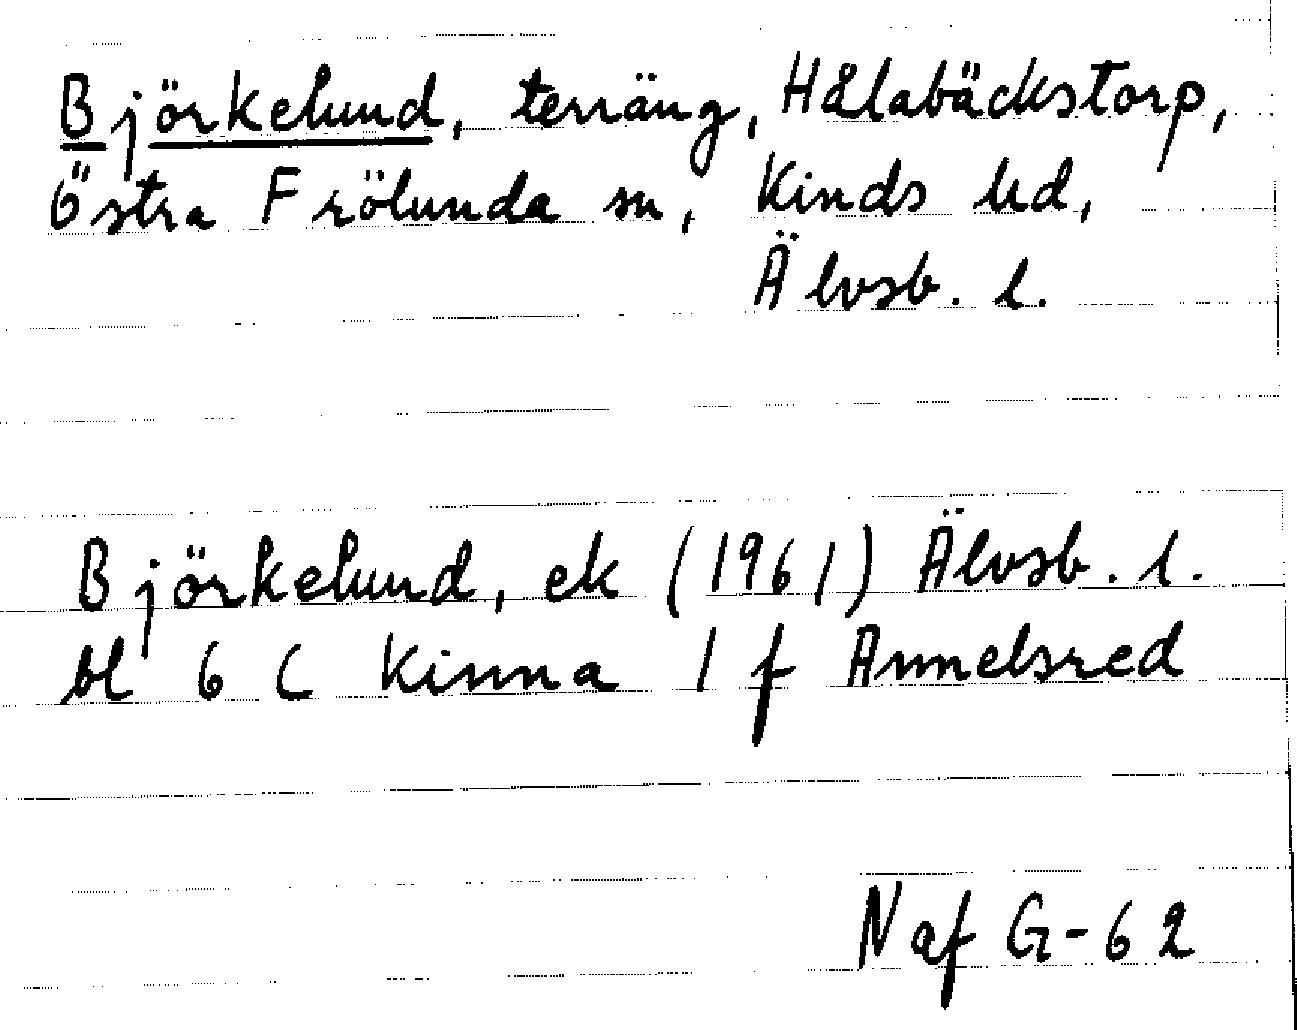 Björkelund, terräng, Hålabäckstorp,
Östra Frölunda sn, Kinds hd,
Älvsb. l.
Björkelund, ek (1961) Älvsb. l.
bl 6 C Kinna 1 f Annelsred
Naf G-62